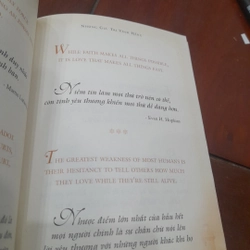 WHILE FAITH MAKES ALL THINGS POSSIBLE,
IT IS LOVE THAT MAKES ALL THINGS EASY.
Niềm tin làm mọi thứ trở nên có thể,
còn tình yêu thương khiến mọi thứ dễ dàng hơn.
- Evan H. Hopkins
THE GREATEST WEAKNESS OF MOST HUMANS IS
THEIR HESITANCY TO TELL OTHERS HOW MUCH
THEY LOVE WHILE THEY'RE STILL ALIVE.
Nhược điểm lớn nhất của hầu hết
mọi người chính là sự chần chừ nói lên
tình yêu thương với những người khác khi họ